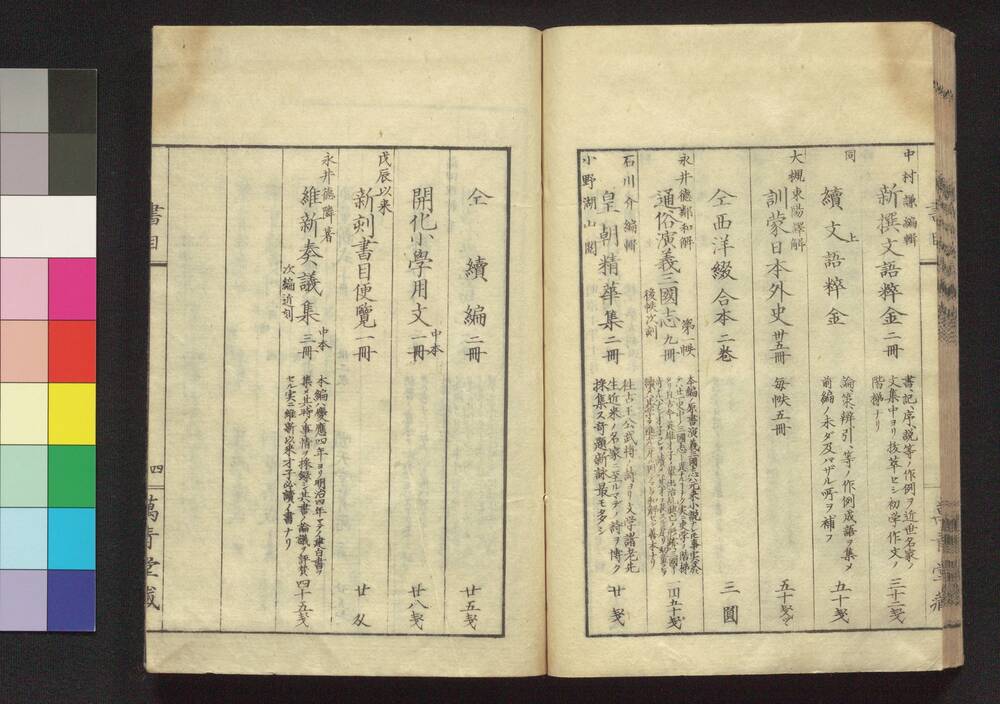 中村謙編輯
新撰文語粹金 二冊
書、記、序、説等ノ作例ヲ近世名家ノ
文集中ヨリ抜萃セシ初学作文ノ
階梯ナリ
三十二戔
同 上
續文語粹金
論、策、辨、引、等ノ作例成語ヲ集メ
前編ノ未ダ及バザル所ヲ補フ
五十戔
大槻東陽譯解
訓蒙日本外史 卅五冊
毎帙五冊
五十戔ヅヽ
仝西洋綴合本 二巻
三圓
永井德鄰和解
通俗演義三國志 九冊
第一帙
後帙次刻
一円五十戔
石川介編輯
皇朝精華集 二冊
小野湖山閲
往古王公武將ノ詩ヨリ文学諸老先
生近来ノ名家ニ至ルマデノ詩ヲ博ク
採集ス奇題新詠最モ多シ
廿戔
仝 續編 二冊
廿五戔
開化小學用文 一冊
中本
廿八戔
戊辰以来
新刻書目便覽 一冊
廿
永井德隣著
維新奏議集 三冊
中本
次編近刻
本編ハ慶應四年ヨリ明治四年マデノ建白書ヲ
集メ其時ノ事情ヲ採録シ其書ノ論議ヲ評賛
セル実ニ維新以来才子必讀ノ書ナリ
四十五戔
書目
四
萬青堂藏